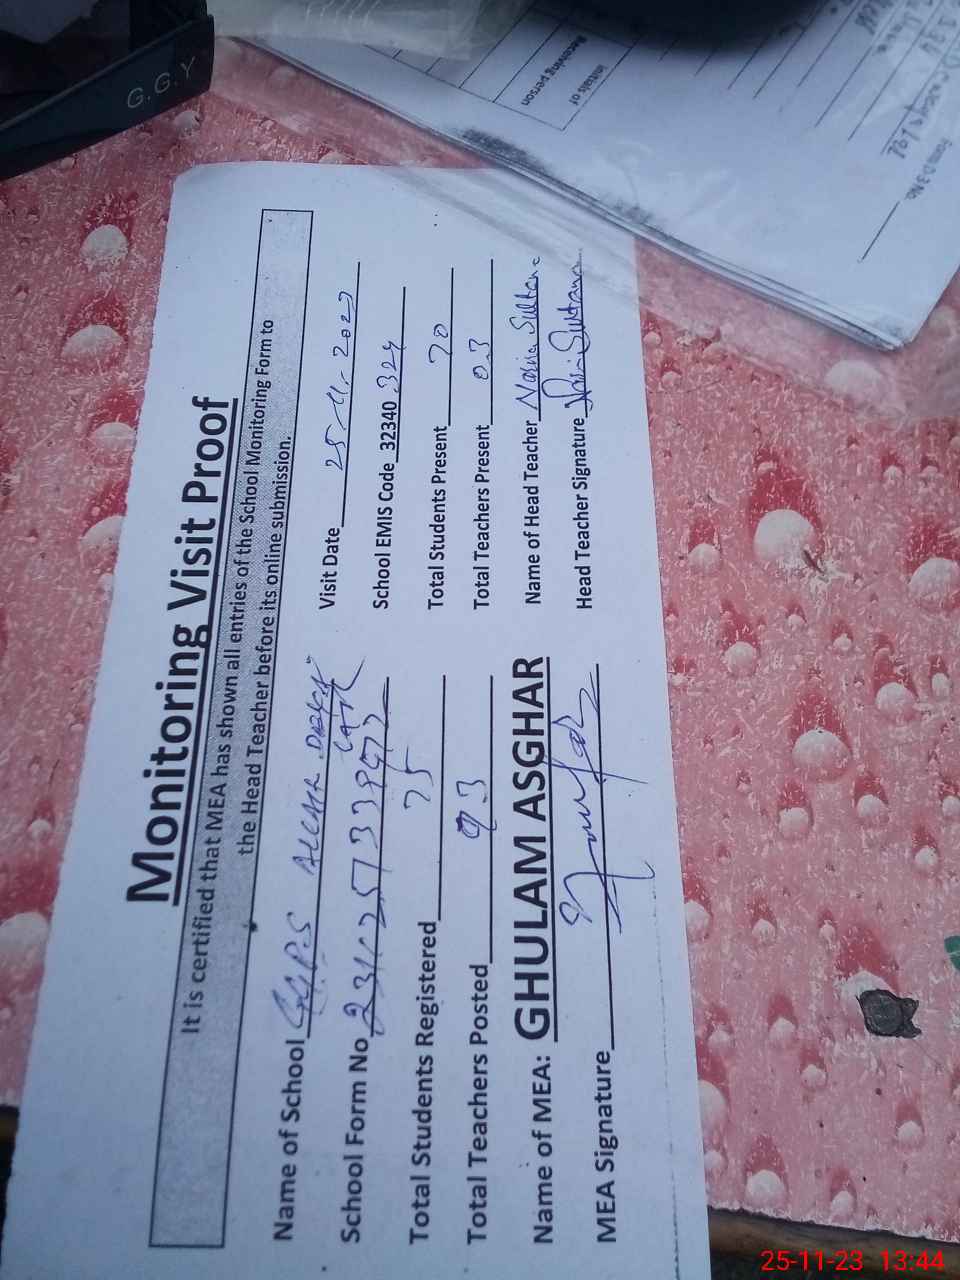 Monitoring Visit Proof
It is certified that MEA has shown all entries of the School Monitoring Form to
the Head Teacher before its online submission.
Name of School G.G.P.S Visit Date 25-11-2023
School Form No School EMIS Code 32340 324
Total Students Registered 75 Total Students Present 70
Total Teachers Posted 03 Total Teachers Present 03
Name of MEA: GHULAM ASGHAR Name of Head Teacher Sultana
MEA Signature Head Teacher Signature Sultana
G.G.Y
Initials of
Receiving person
Form D.3 No.
25-11-23 13:44